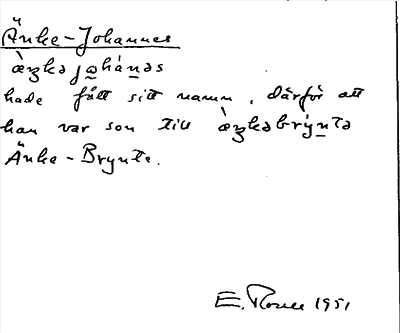 Änke-Johannes
æ̀ŋkəjo̲hán̲əs
hade fått sitt namn, därför att
han var son till æ̀ŋkəbrýn̲tə
Änke-Brynte.
E. 1951